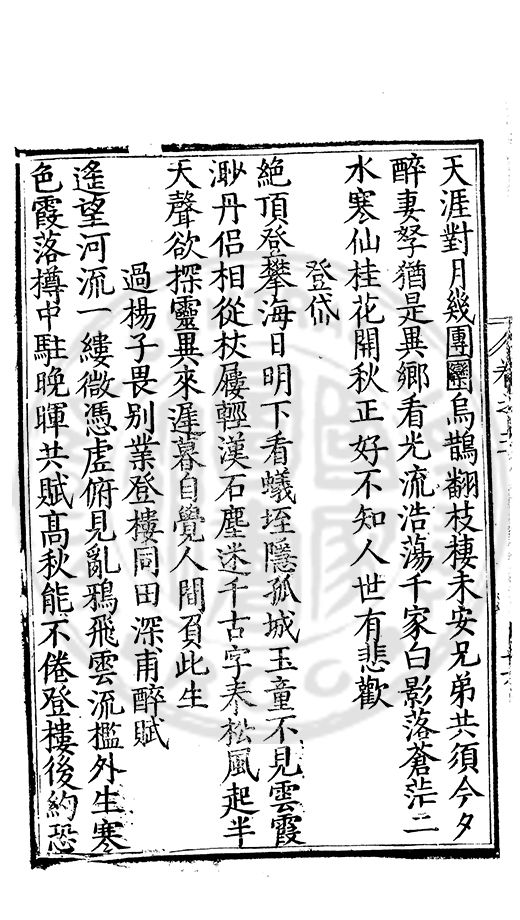 天涯對月幾團圞烏鵲翻枝棲未安兄弟共須今夕
醉妻孥猶是異鄉看光流浩蕩千家白影落蒼茫二
水寒仙桂花開秋正好不知人世有悲歡
登岱
絕頂登攀海日明下看蟻垤隱孤城玉童不見雲霞
渺丹侶相從杖屨輕漢石塵迷千古字秦松風起半
天聲欲探靈異來遲暮自覺人間負此生
過楊子畏别業登樓同田深甫醉賦
遙望河流一縷微憑虛俯見亂鴉飛雲流檻外生寒
色霞落樽中駐晚暉共賦高秋能不倦登樓後約恐